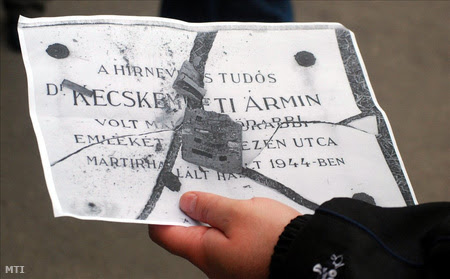 A HÍRNEVES TUDÓS
DR KECSKEMÉTI ÁRMIN
VOLT
EMLÉKÉT EZEN UTCA
MÁRTÍRHALÁLT HALT 1944-BEN
MTI